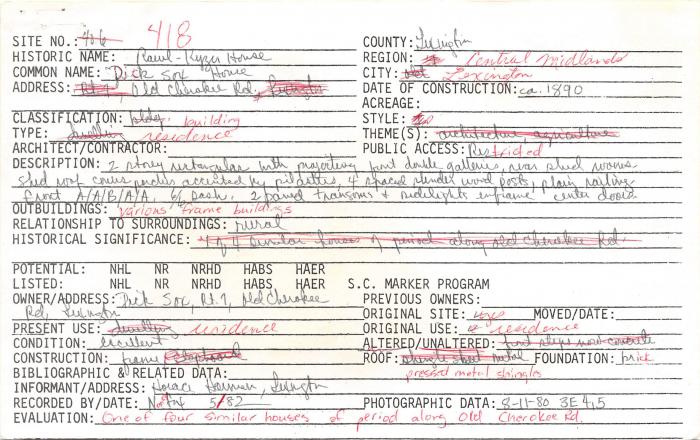 SITE NO.: 406 418 COUNTY: Lexington
HISTORIC NAME: Rawl-Kyzer House REGION: Central Midlands
COMMON NAME: Dick Sox House CITY: Lexington
ADDRESS: Rt. 1, Old Cherokee Rd, Lexington DATE OF CONSTRUCTION: ca. 1890
ACREAGE:
CLASSIFICATION: bldg. building STYLE:
TYPE: dwelling residence THEME(S): architecture, agriculture
ARCHITECT/CONTRACTOR: PUBLIC ACCESS: Restricted
DESCRIPTION: 2 storey rectangular with projecting front double galleries, rear shed rooms
shed roof covers porches accented by pilasters, 4 spaced slender wood posts, plain railing
front A/A/B/A/A, 6/6 sash. 2 paned transoms & sidelights enframe center doors
OUTBUILDINGS: various frame buildings
RELATIONSHIP TO SURROUNDINGS: rural
HISTORICAL SIGNIFICANCE: 1 of 4 similar houses of period along old Cherokee Rd.
POTENTIAL: NHL NR NRHD HABS HAER
LISTED: NHL NR NRHD HABS HAER S.C. MARKER PROGRAM
OWNER/ADDRESS: Dick Sox, Rt. 1, Old Cherokee PREVIOUS OWNERS:
Rd, Lexington ORIGINAL SITE: yes MOVED/DATE:
PRESENT USE: dwelling residence ORIGINAL USE: residence
CONDITION: excellent ALTERED/UNALTERED: front steps now concrete
CONSTRUCTION: frame clapboard ROOF: shingle sheet metal FOUNDATION: brick
BIBLIOGRAPHIC & RELATED DATA: pressed metal shingles
INFORMANT/ADDRESS: Horace Harman, Lexington
RECORDED BY/DATE: 5/82 PHOTOGRAPHIC DATA: 8-11-80 3E 4,5
EVALUATION: One of four similar houses of period along Old Cherokee Rd.